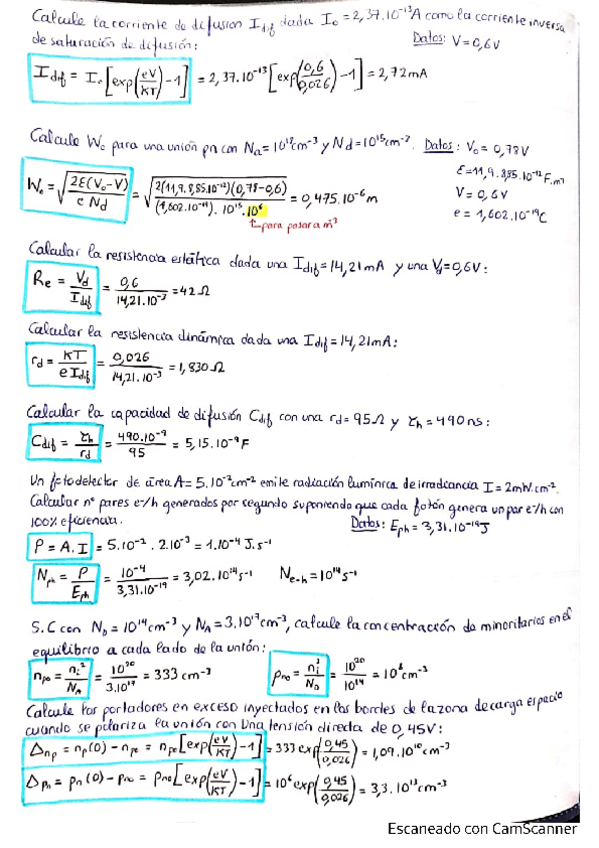 Calcule la corriente de difusión Idif dada I₀ = 2,37.10⁻¹³A como la corriente inversa
de saturación de difusión: Datos: V=0,6V
Idif = I₀[exp(eV/KT)-1] = 2,37.10⁻¹³[exp(0,6/0,026)-1] = 2,72mA
Calcule W₀ para una unión pn con Na=10¹⁹cm⁻³ y Nd=10¹⁵cm⁻². Datos: V₀ = 0,78V
W₀ = √(2ε(V₀-V)/e Nd) = √(2(11,9.8,85.10⁻¹²)(0,78-0,6)/(1,602.10⁻¹⁹).10¹⁵.10⁶) = 0,475.10⁻⁶m
ε=11,9.8,85.10⁻¹²F.m⁻¹
V = 0,6V
e = 1,602.10⁻¹⁹C
para pasar a m³
Calcular la resistencia estática dada una Idif=14,21mA y una Vd=0,6V:
Re = Vd/Idif = 0,6/14,21.10⁻³ = 42Ω
Calcular la resistencia dinámica dada una Idif=14,21mA:
rd = KT/e Idif = 0,026/14,21.10⁻³ = 1,830Ω
Calcular la capacidad de difusión Cdif con una rd=95Ω y τh=490ns:
Cdif = τh/rd = 490.10⁻⁹/95 = 5,15.10⁻⁹F
Un fotodetector de área A=5.10⁻²cm⁻² emite radiación lumínica de irradiancia I=2mW.cm⁻².
Calcular nº pares e⁻/h generados por segundo suponiendo que cada fotón genera un par e⁻/h con
100% eficiencia. Datos: Eph = 3,31.10⁻¹⁹J
P = A.I = 5.10⁻² . 2.10⁻³ = 1.10⁻⁴ J.s⁻¹
Nph = P/Eph = 10⁻⁴/3,31.10⁻¹⁹ = 3,02.10¹⁴s⁻¹ Ne-h = 10¹⁴s⁻¹
S.C con ND = 10¹⁴cm⁻³ y NA = 3.10¹⁷cm⁻³, calcule la concentración de minoritarios en el
equilibrio a cada lado de la unión:
np₀ = ni²/NA = 10²⁰/3.10¹⁷ = 333 cm⁻³ pn₀ = ni²/ND = 10²⁰/10¹⁴ = 10⁶cm⁻³
Calcule los portadores en exceso inyectados en los bordes de la zona de carga espacio
cuando se polariza la unión con una tensión directa de 0,45V:
Δnp = np(0) - np₀ = np₀[exp(eV/KT)-1] = 333 exp(0,45/0,026) = 1,09.10¹⁰cm⁻³
Δpn = pn(0) - pn₀ = pn₀[exp(eV/KT)-1] = 10⁶exp(0,45/0,026) = 3,3.10¹³cm⁻³
Escaneado con CamScanner